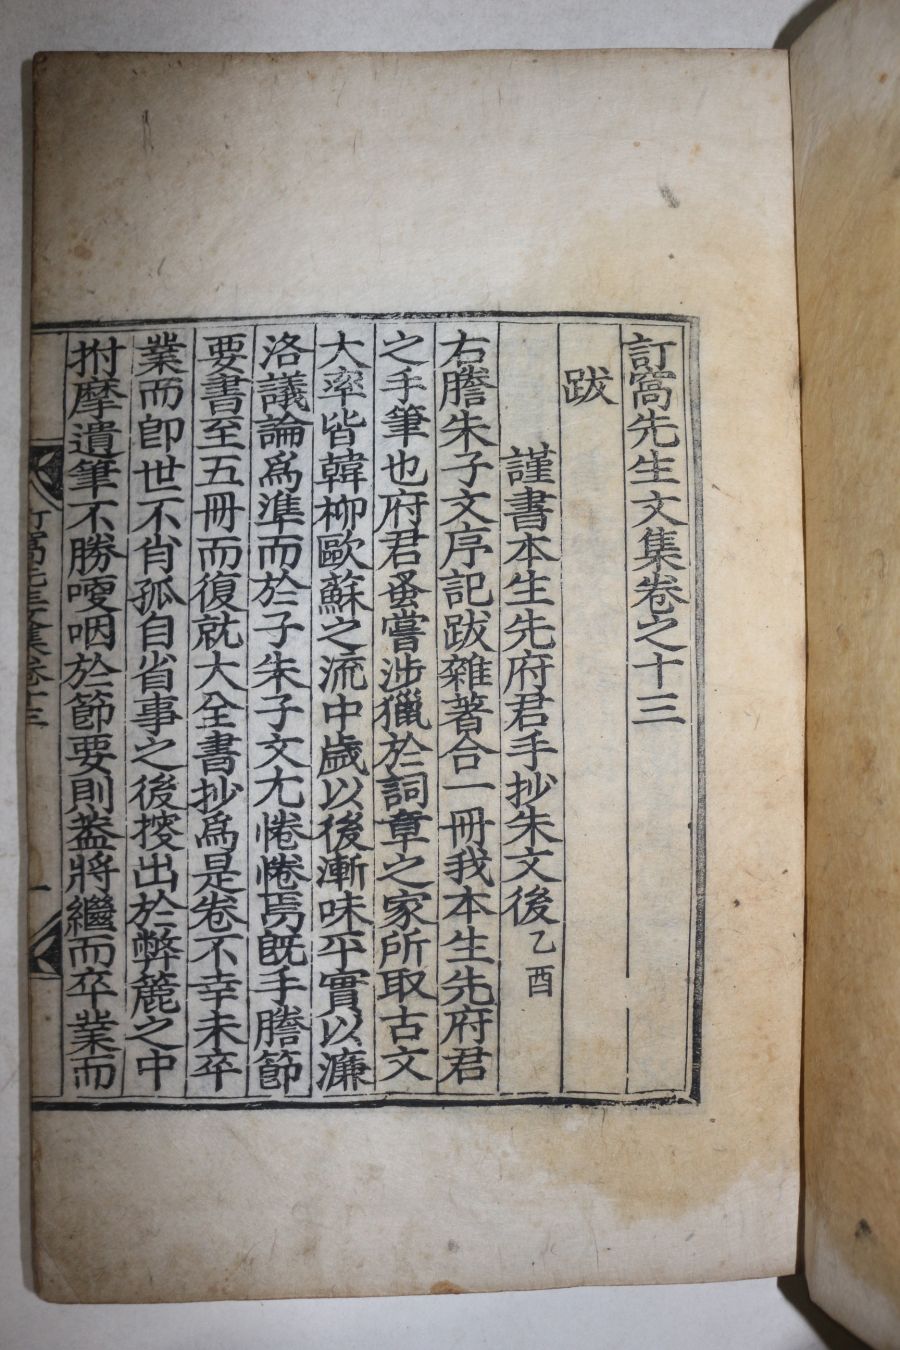 訂窩先生文集卷之十三
跋
謹書本生先府君手抄朱文後 乙酉
右謄朱子文序記跋雜著合一冊我本生先府君
之手筆也府君蚤嘗涉獵於詞章之家所取古文
大率皆韓柳歐蘇之流中歲以後漸味平實以濂
洛議論爲準而於子朱子文尤惓惓焉旣手謄節
要書至五冊而復就大全書抄爲是卷不幸未卒
業而卽世不肖孤自省事之後搜出於弊簏之中
拊摩遺筆不勝哽咽於節要則蓋將繼而卒業而
訂窩先生文集卷十三
一